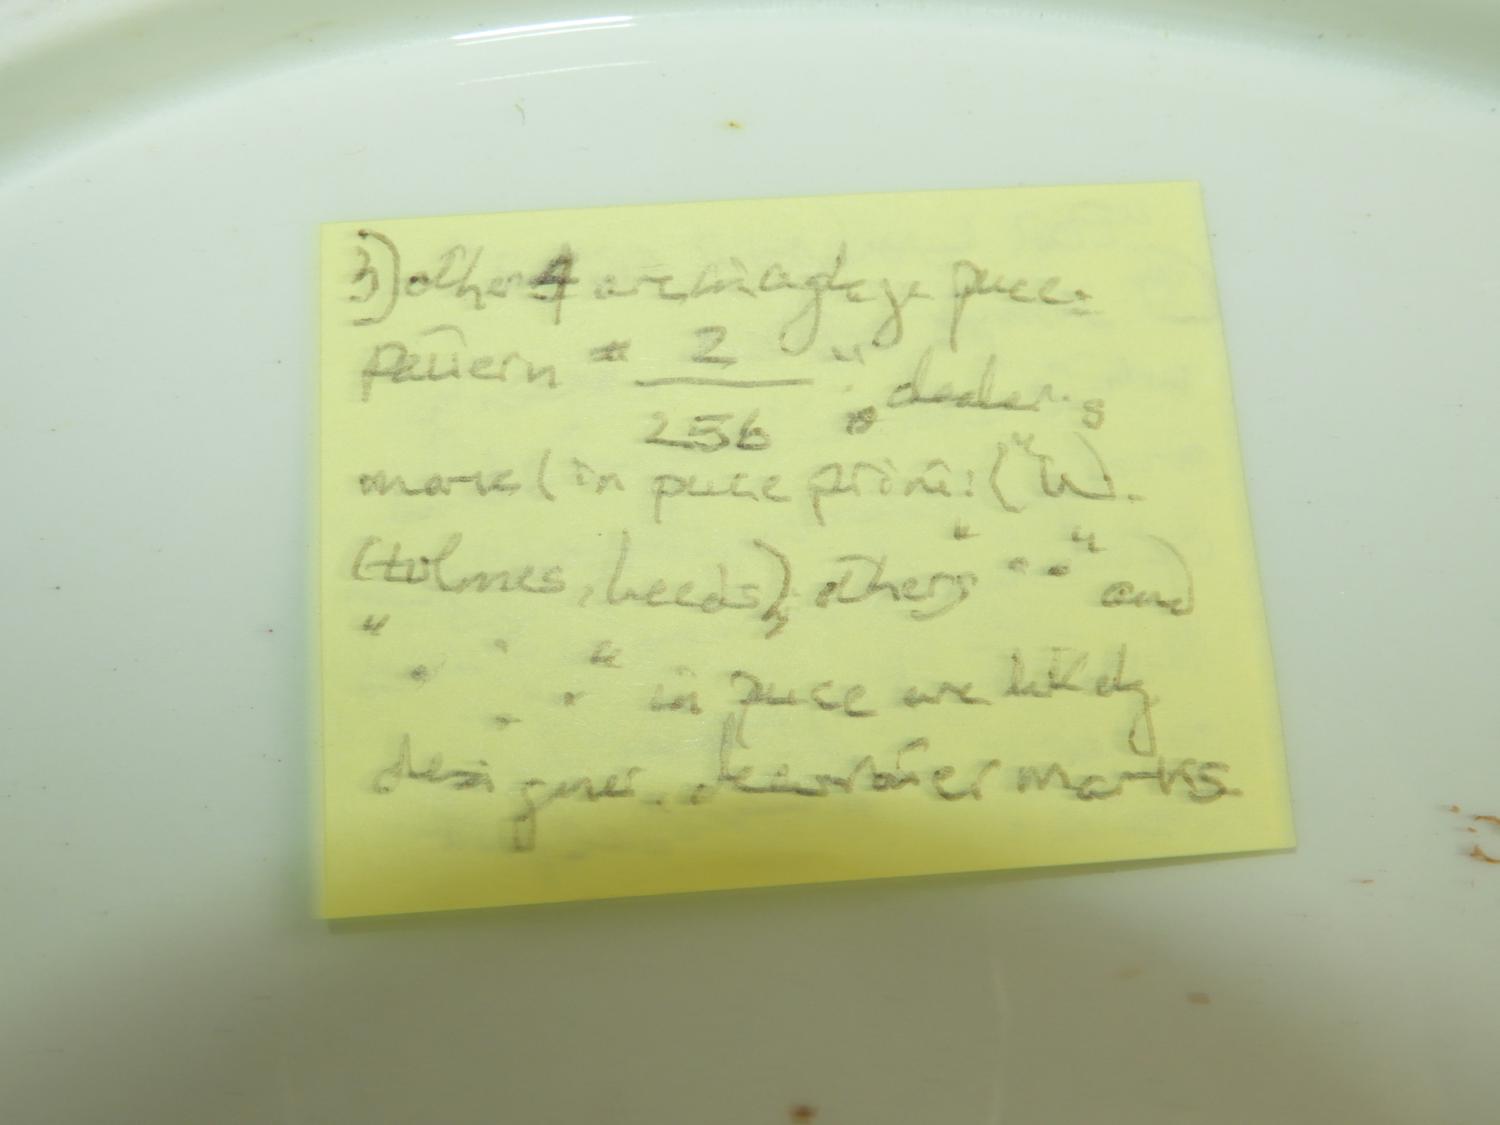 3) other 4 are in puce:
pattern " 2/256 "; dealer's
mark (in puce print: ("W.
Holmes, Leeds"); others " .. " and
" . . . . " in puce are likely
designer, decorator marks.